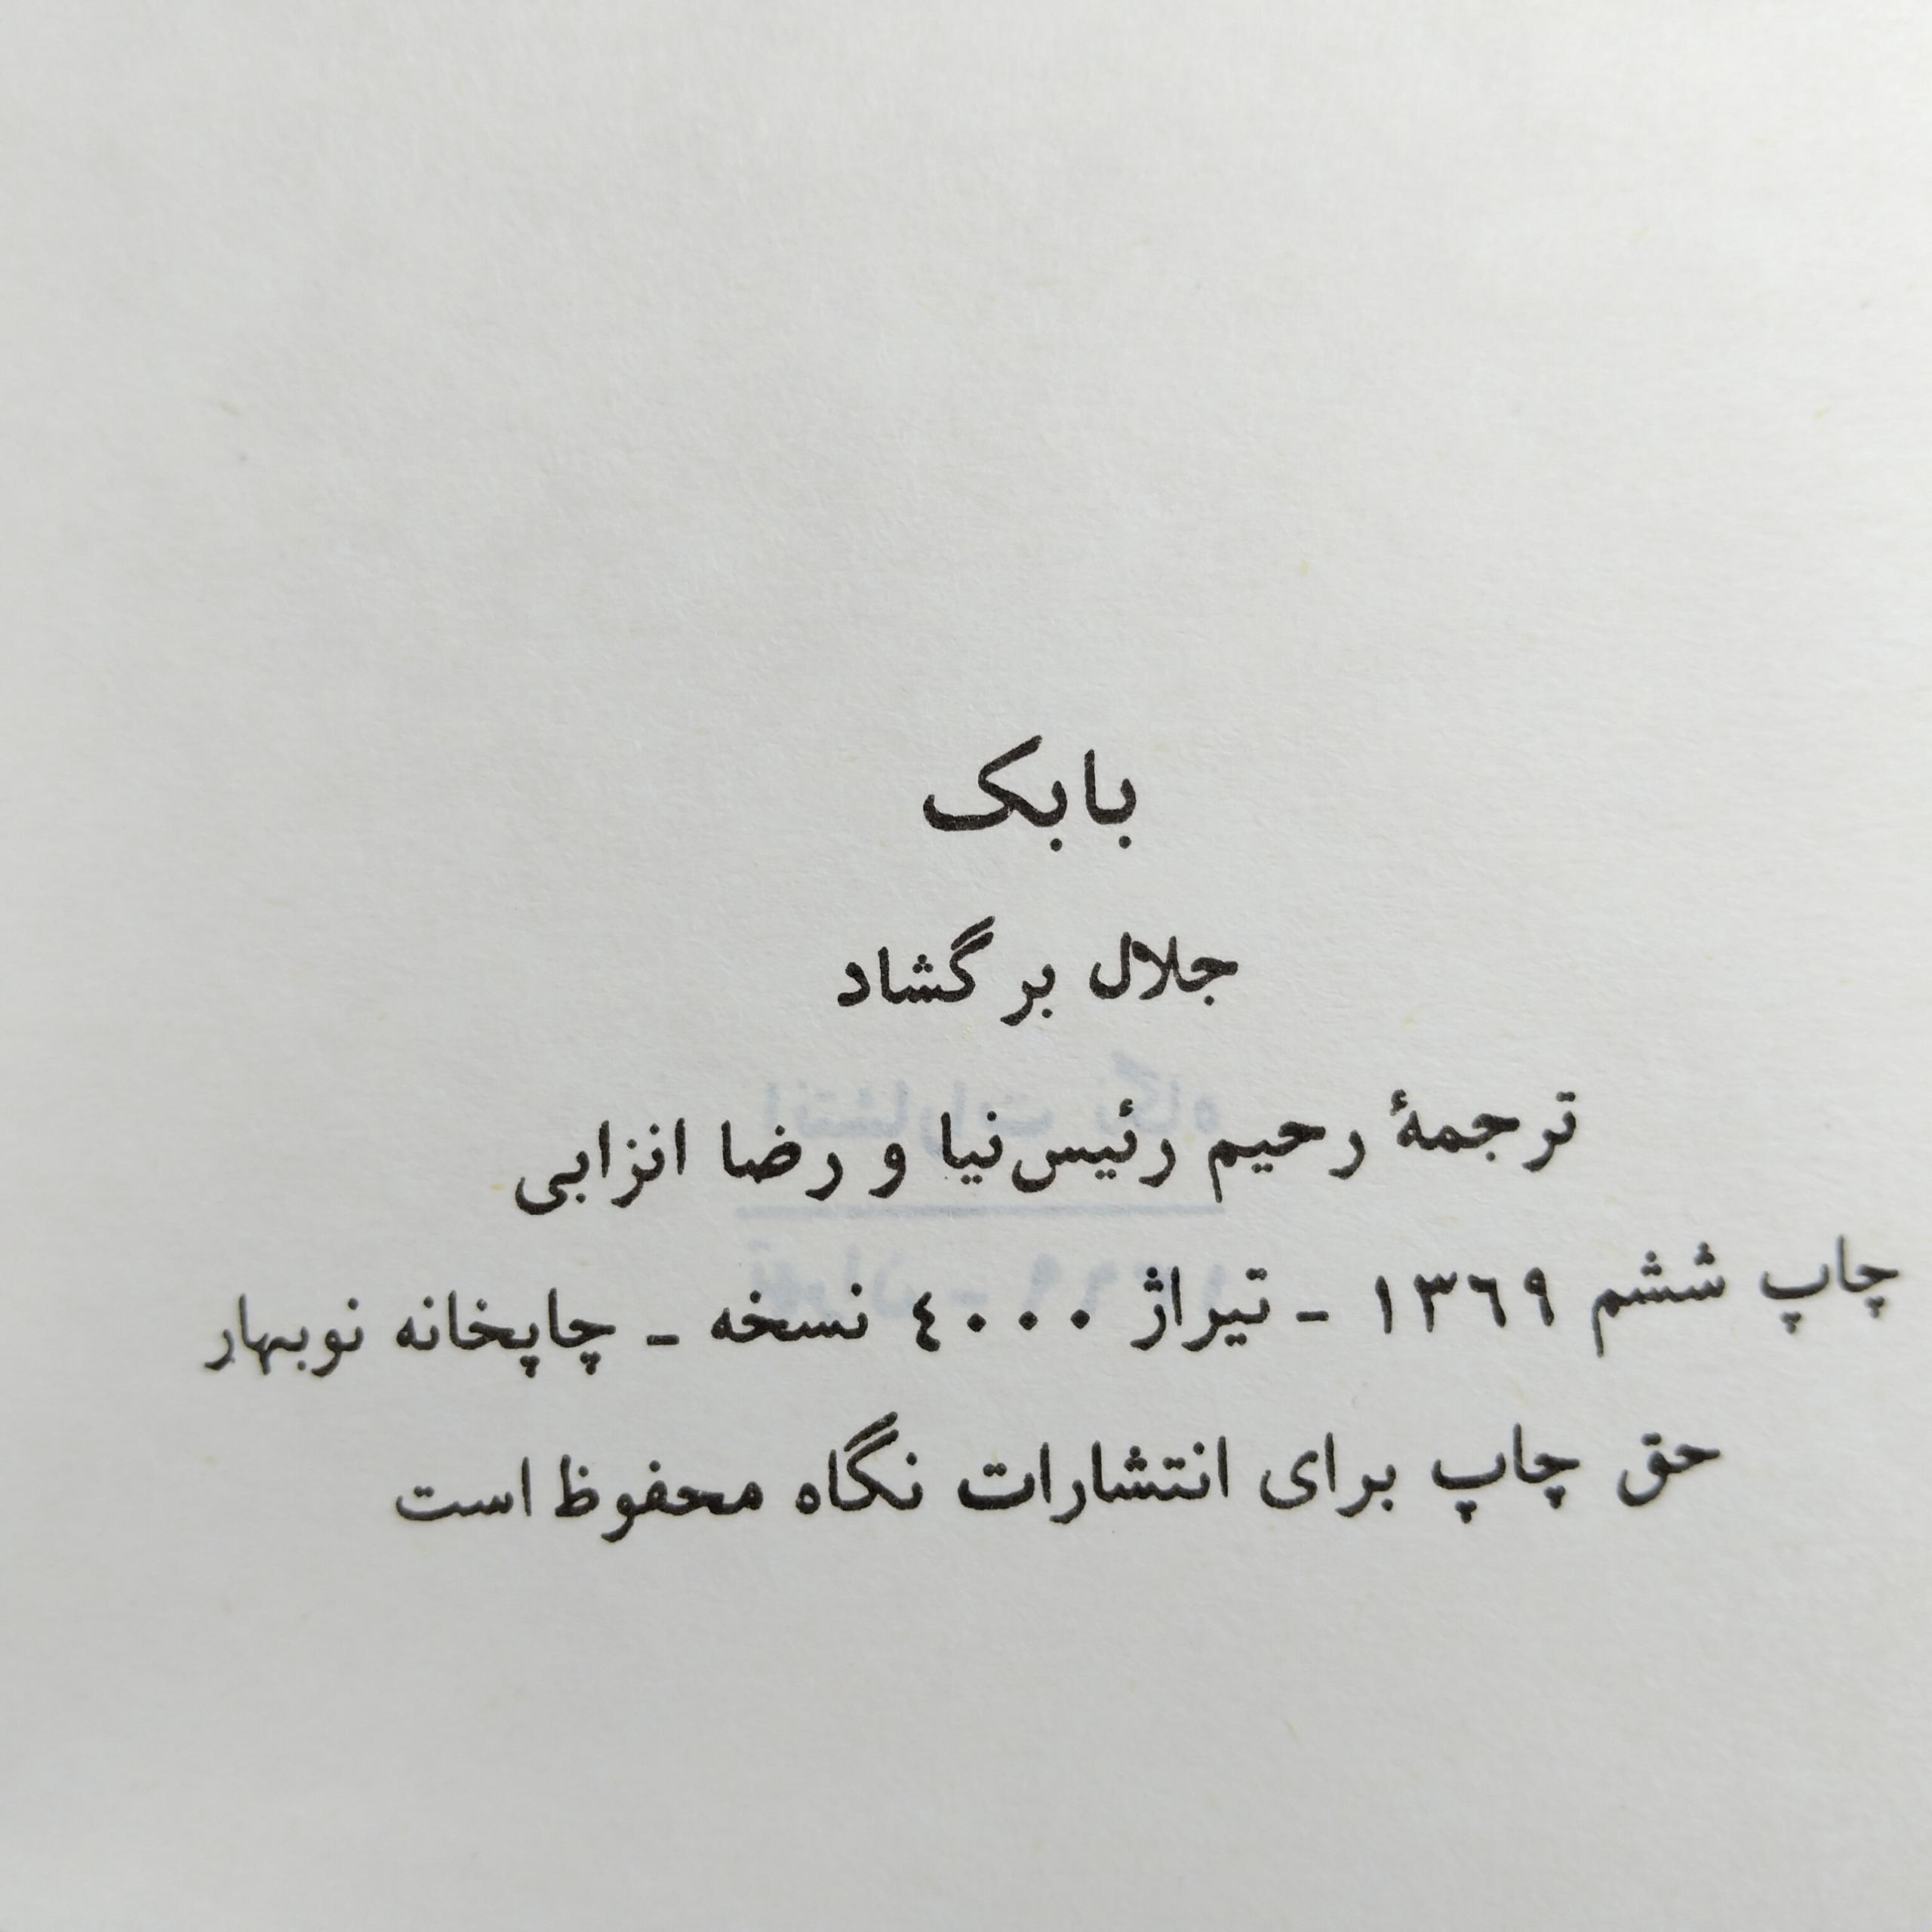 بابک
جلال برگشاد
ترجمهٔ رحیم رئیس‌نیا و رضا انزابی
چاپ ششم ١٣٦٩ - تیراژ ٤٠٠٠ نسخه - چاپخانه نوبهار
حق چاپ برای انتشارات نگاه محفوظ است